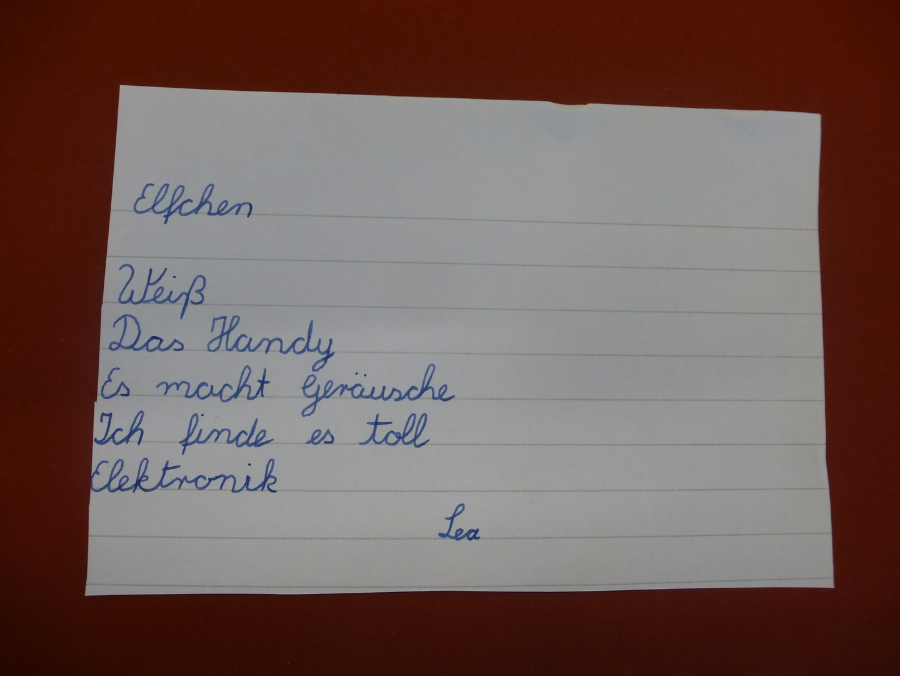 Elfchen
Weiß
Das Handy
Es macht Geräusche
Ich finde es toll
Elektronik
Lea